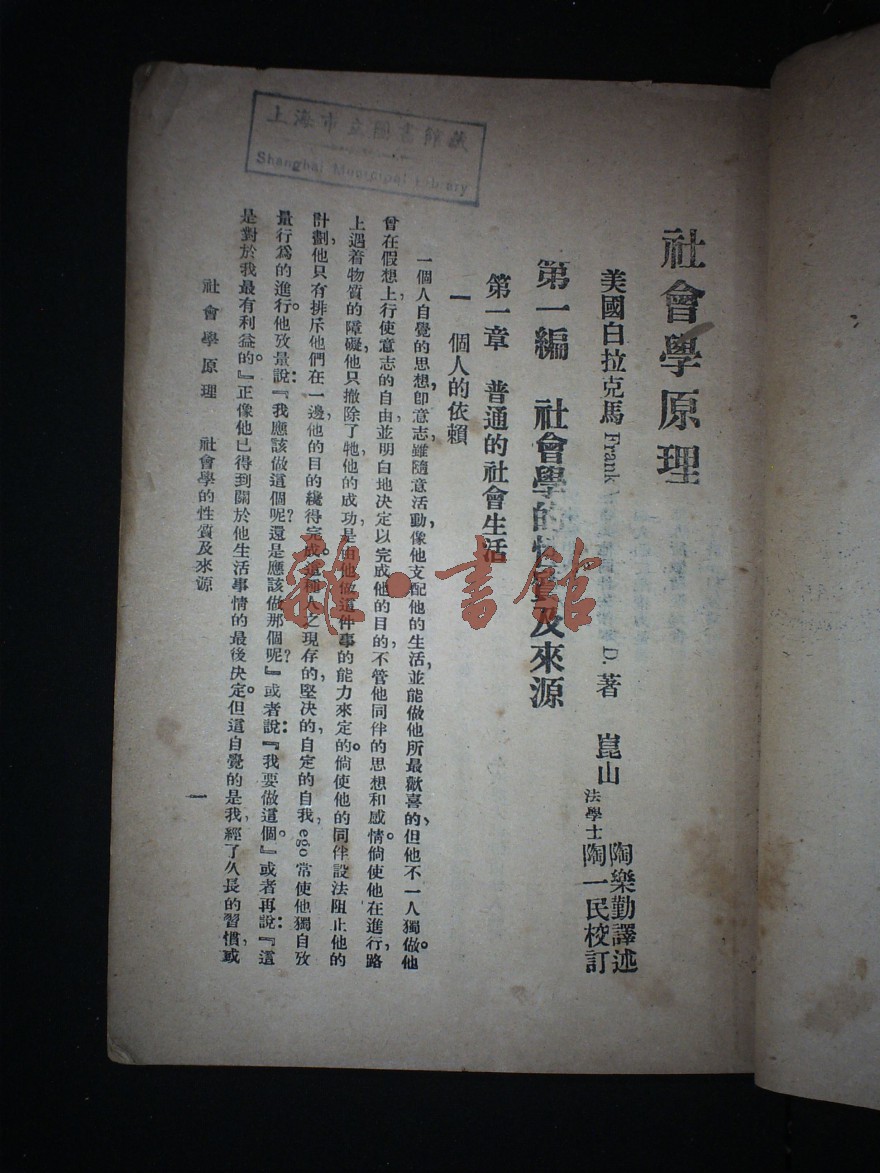 上海市立圖書館藏
Shanghai Municipal Library
社會學原理
美國白拉克馬 Frank D. 著 崑山 陶樂勤譯述
法學士 陶一民校訂
第一編 社會學的性質及來源
第一章 普通的社會生活
一 個人的依賴
一個人自覺的思想,卽意志,雖隨意活動,像他支配他的生活,並能做他所最歡喜的,但他不一人獨做。他
曾在假想上行使意志的自由,並明白地決定以完成他的目的,不管他同伴的思想和感情。倘使他在進行路
上遇着物質的障礙,他只撤除了牠,他的成功,是由他做這件事的能力來定的。倘使他的同伴設法阻止他的
計劃,他只有排斥他們在一邊,他的目的纔得完成。這種人之現存的,堅決的,自定的自我,ego 常使他獨自攷
量行爲的進行。他攷量說:『我應該做這個呢?還是應該做那個呢?』或者說:『我要做這個。』或者再說:『這
是對於我最有利益的。』正像他已得到關於他生活事情的最後決定。但這自覺的是我,經了久長的習慣,或
社會學原理 社會學的性質及來源
一
雜·書館